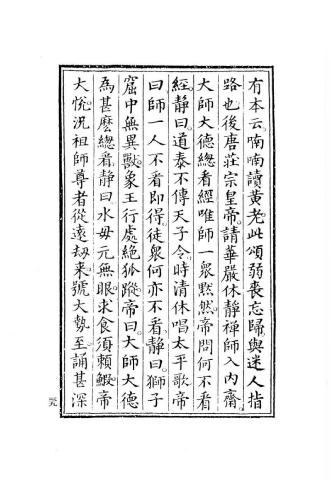 有本云喃喃讀黃老此頌弱喪忘歸與迷人指
路也後唐莊宗皇帝請華嚴休靜禪師入內齋
大師大德緫看經唯師一衆默然帝問何不看
經靜曰道泰不傳天子令時清休唱太平歌帝
曰師一人不看即得徒衆何亦不看靜曰獅子
窟中無異獸象王行處絕狐蹤帝曰大師大德
為甚麽緫看靜曰水母元無眼求食須賴鰕帝
大恱況祖師尊者從遠刼来號大勢至誦甚深